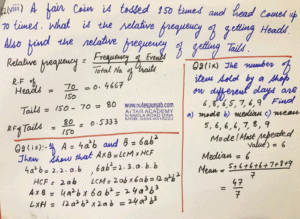 Q2(viii) A fair coin is tossed 150 times and head comes up
70 times. What is the relative frequency of getting Heads.
Also find the relative frequency of getting Tails.
Relative frequency = Frequency of Events
Total No of trails
R.F of
Heads = 70/150 = 0.4667
Tails = 150 - 70 = 80
RF of Tails = 80/150 = 0.5333
www.notespunjab.com
Q9(ix):- If A = 4a²b and B = 6ab²
Then show that AXB = LCM X HCF
4a²b = 2.2.a.a.b, 6ab² = 2.3.a.b.b
HCF = 2ab
AXB = 4a²b x 6ab² = 24a³b³
LXH = 12a²b² x 2ab = 24a³b³
Q9(ix) The number of
item sold by a shop
on different days are
6, 8, 6, 5, 7, 6, 9 Find
a) mode b) median c) mean
5, 6, 6, 6, 7, 8, 9
Mode (Most repeated
value) = 6
Median = 6
Mean = 5+6+6+6+7+8+9
7
= 47
7